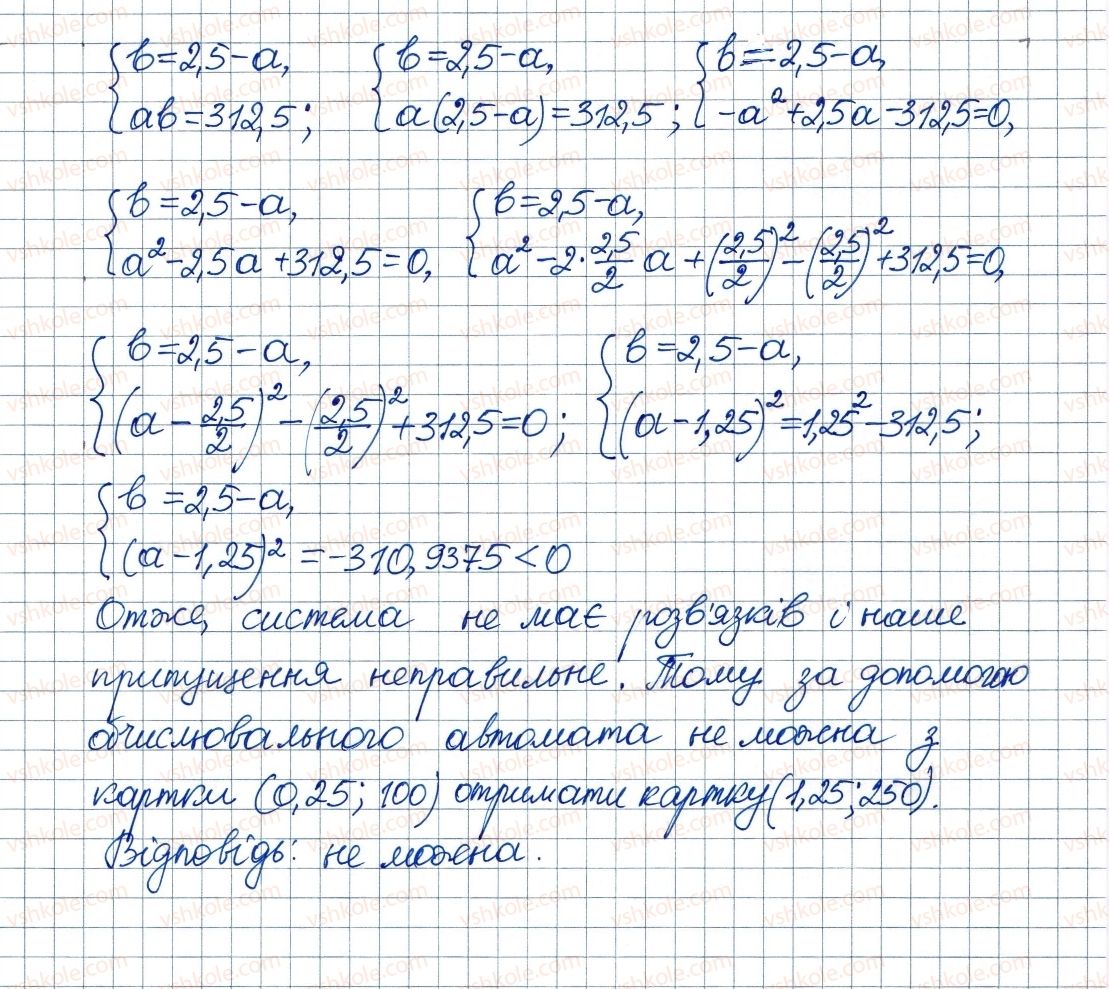 {в=2,5-а, {в=2,5-а, {в=2,5-а,
{ав=312,5; {а(2,5-а)=312,5; {-а²+2,5а-312,5=0,
{в=2,5-а, {в=2,5-а,
{а²-2,5а+312,5=0, {а²-2·2,5/2 а+(2,5/2)²-(2,5/2)²+312,5=0,
{в=2,5-а, {в=2,5-а,
{(а-2,5/2)²-(2,5/2)²+312,5=0; {(а-1,25)²=1,25²-312,5;
{в=2,5-а,
{(а-1,25)²=-310,9375<0
Отже, система не має розв'язків і наше
припущення неправильне. Тому за допомогою
обчислювального автомата не можна з
картки (0,25; 100) отримати картку (1,25; 250).
Відповідь: не можна.